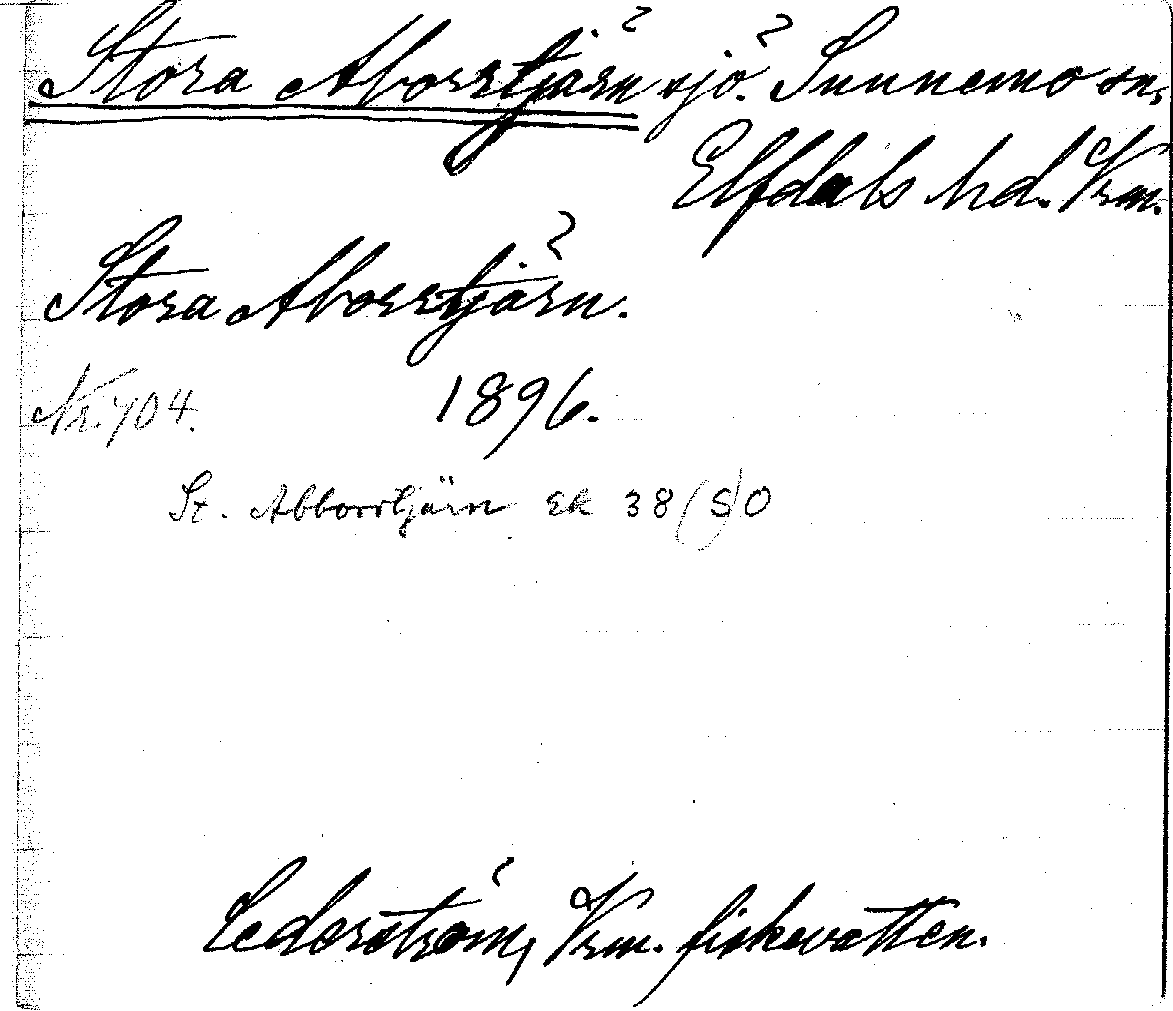 Stora Aborrtjärn sjö. Sunnemo sn,
Elfdals hd. Vrm.
Stora Aborrtjärn.
Nr. 704. 1896.
St. Abborrtjärn Ek 38 (S)O
Cederström, Vrm. fiskevatten.